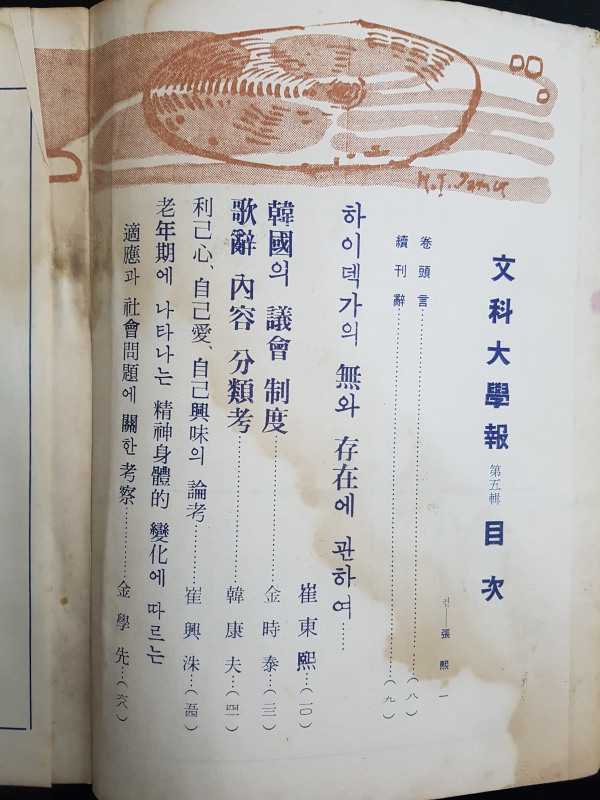 文科大學報 第五輯 目次
컷—張熙一
卷頭言……(八)
續刊辭……(九)
하이덱가의 無와 存在에 관하여……崔東熙…(一〇)
韓國의 議會 制度……金時泰…(二三)
歌辭 內容 分類考……韓康夫…(四一)
利己心、自己愛、自己興味의 論考……崔興洙…(五四)
老年期에 나타나는 精神身體的 變化에 따르는
適應과 社會問題에 關한 考察……金學先…(六八)